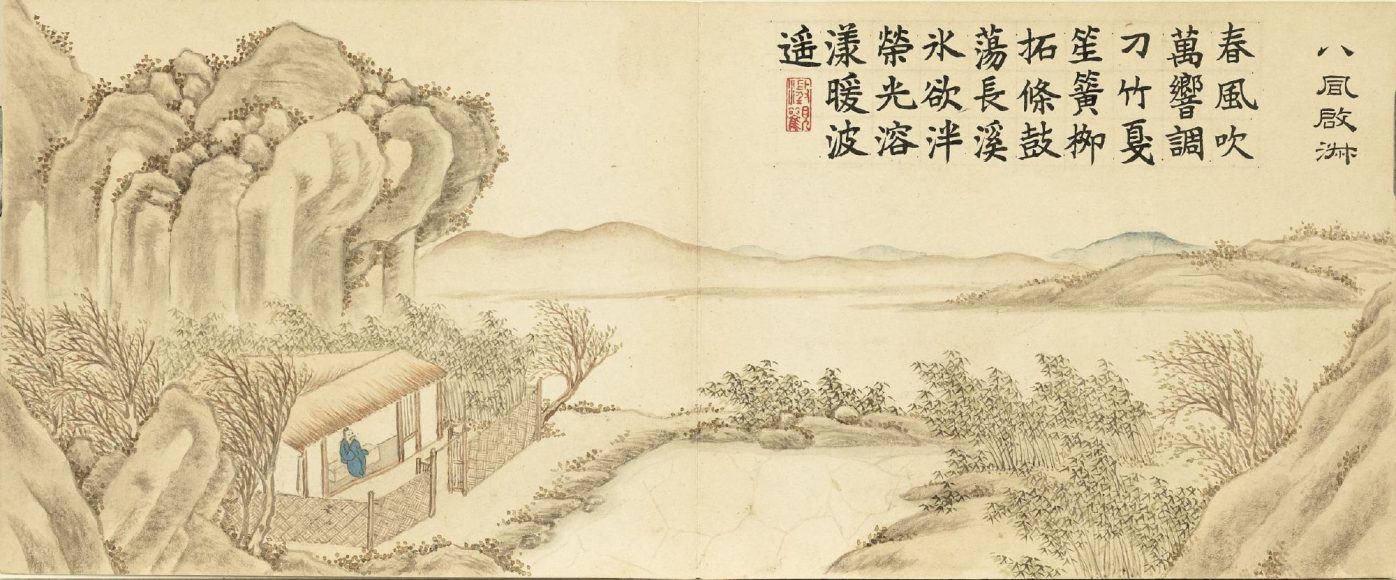 八凬啟
春風吹
萬響調
刁竹戛
笙簧柳
拓條鼓
蕩長溪
氷欲泮
榮光溶
漾暖波
遥